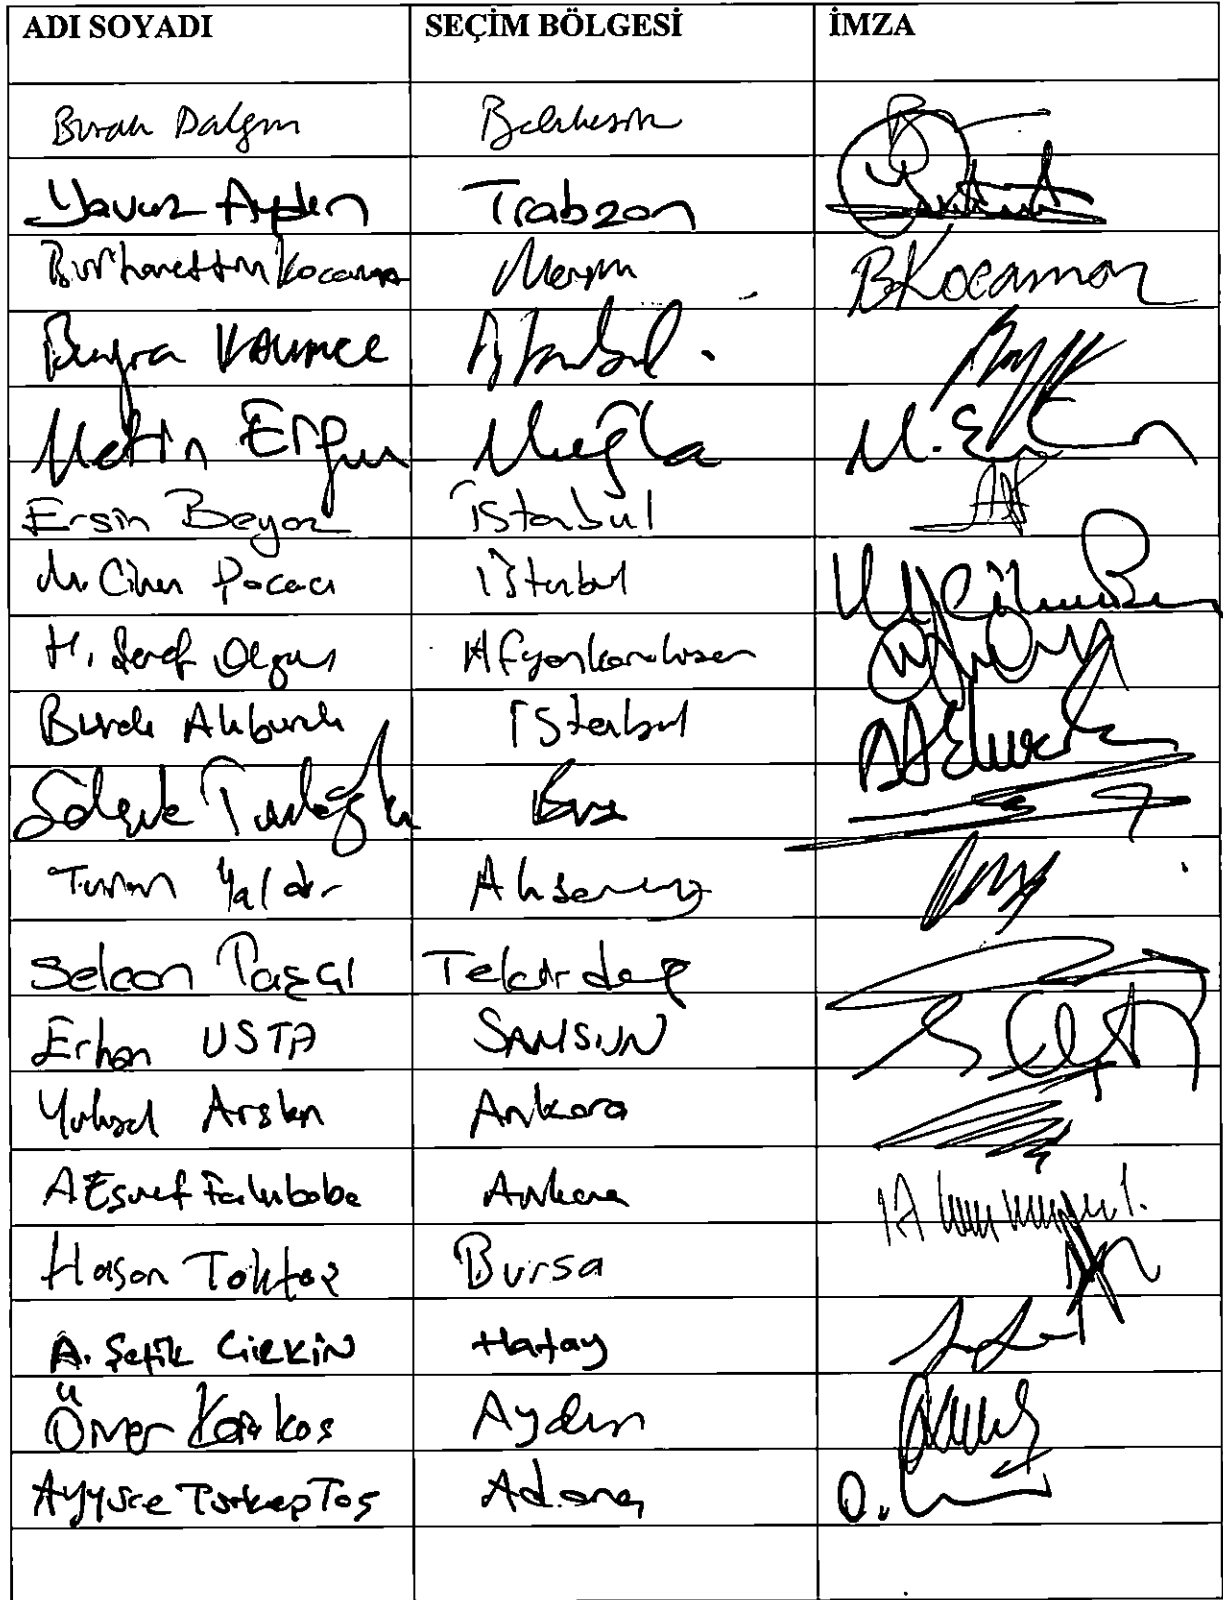 ADI SOYADI SEÇİM BÖLGESİ İMZA
Burak Dalgın Balıkesir
Yavuz Aydın Trabzon
Burhanettin Kocamaz Mersin B Kocamaz
Buğra Kavuncu İstanbul.
Metin Ergun Muğla M. E
Ersin Beyaz İstanbul
M. Cihan Paçacı İstanbul
H. Şeref Olgun Afyonkarahisar
Burak Akburak İstanbul
Selçuk Türkoğlu Bursa
Turan Yaldır Aksaray
Selcan Taşçı Tekirdağ
Erhan USTA SAMSUN
Yüksel Arslan Ankara
A Eşref Fakıbaba Ankara
Hasan Toktaş Bursa
A. Şefik ÇİRKİN Hatay
Ömer Karakaş Aydın
Ayyüce Türkeş Taş Adana